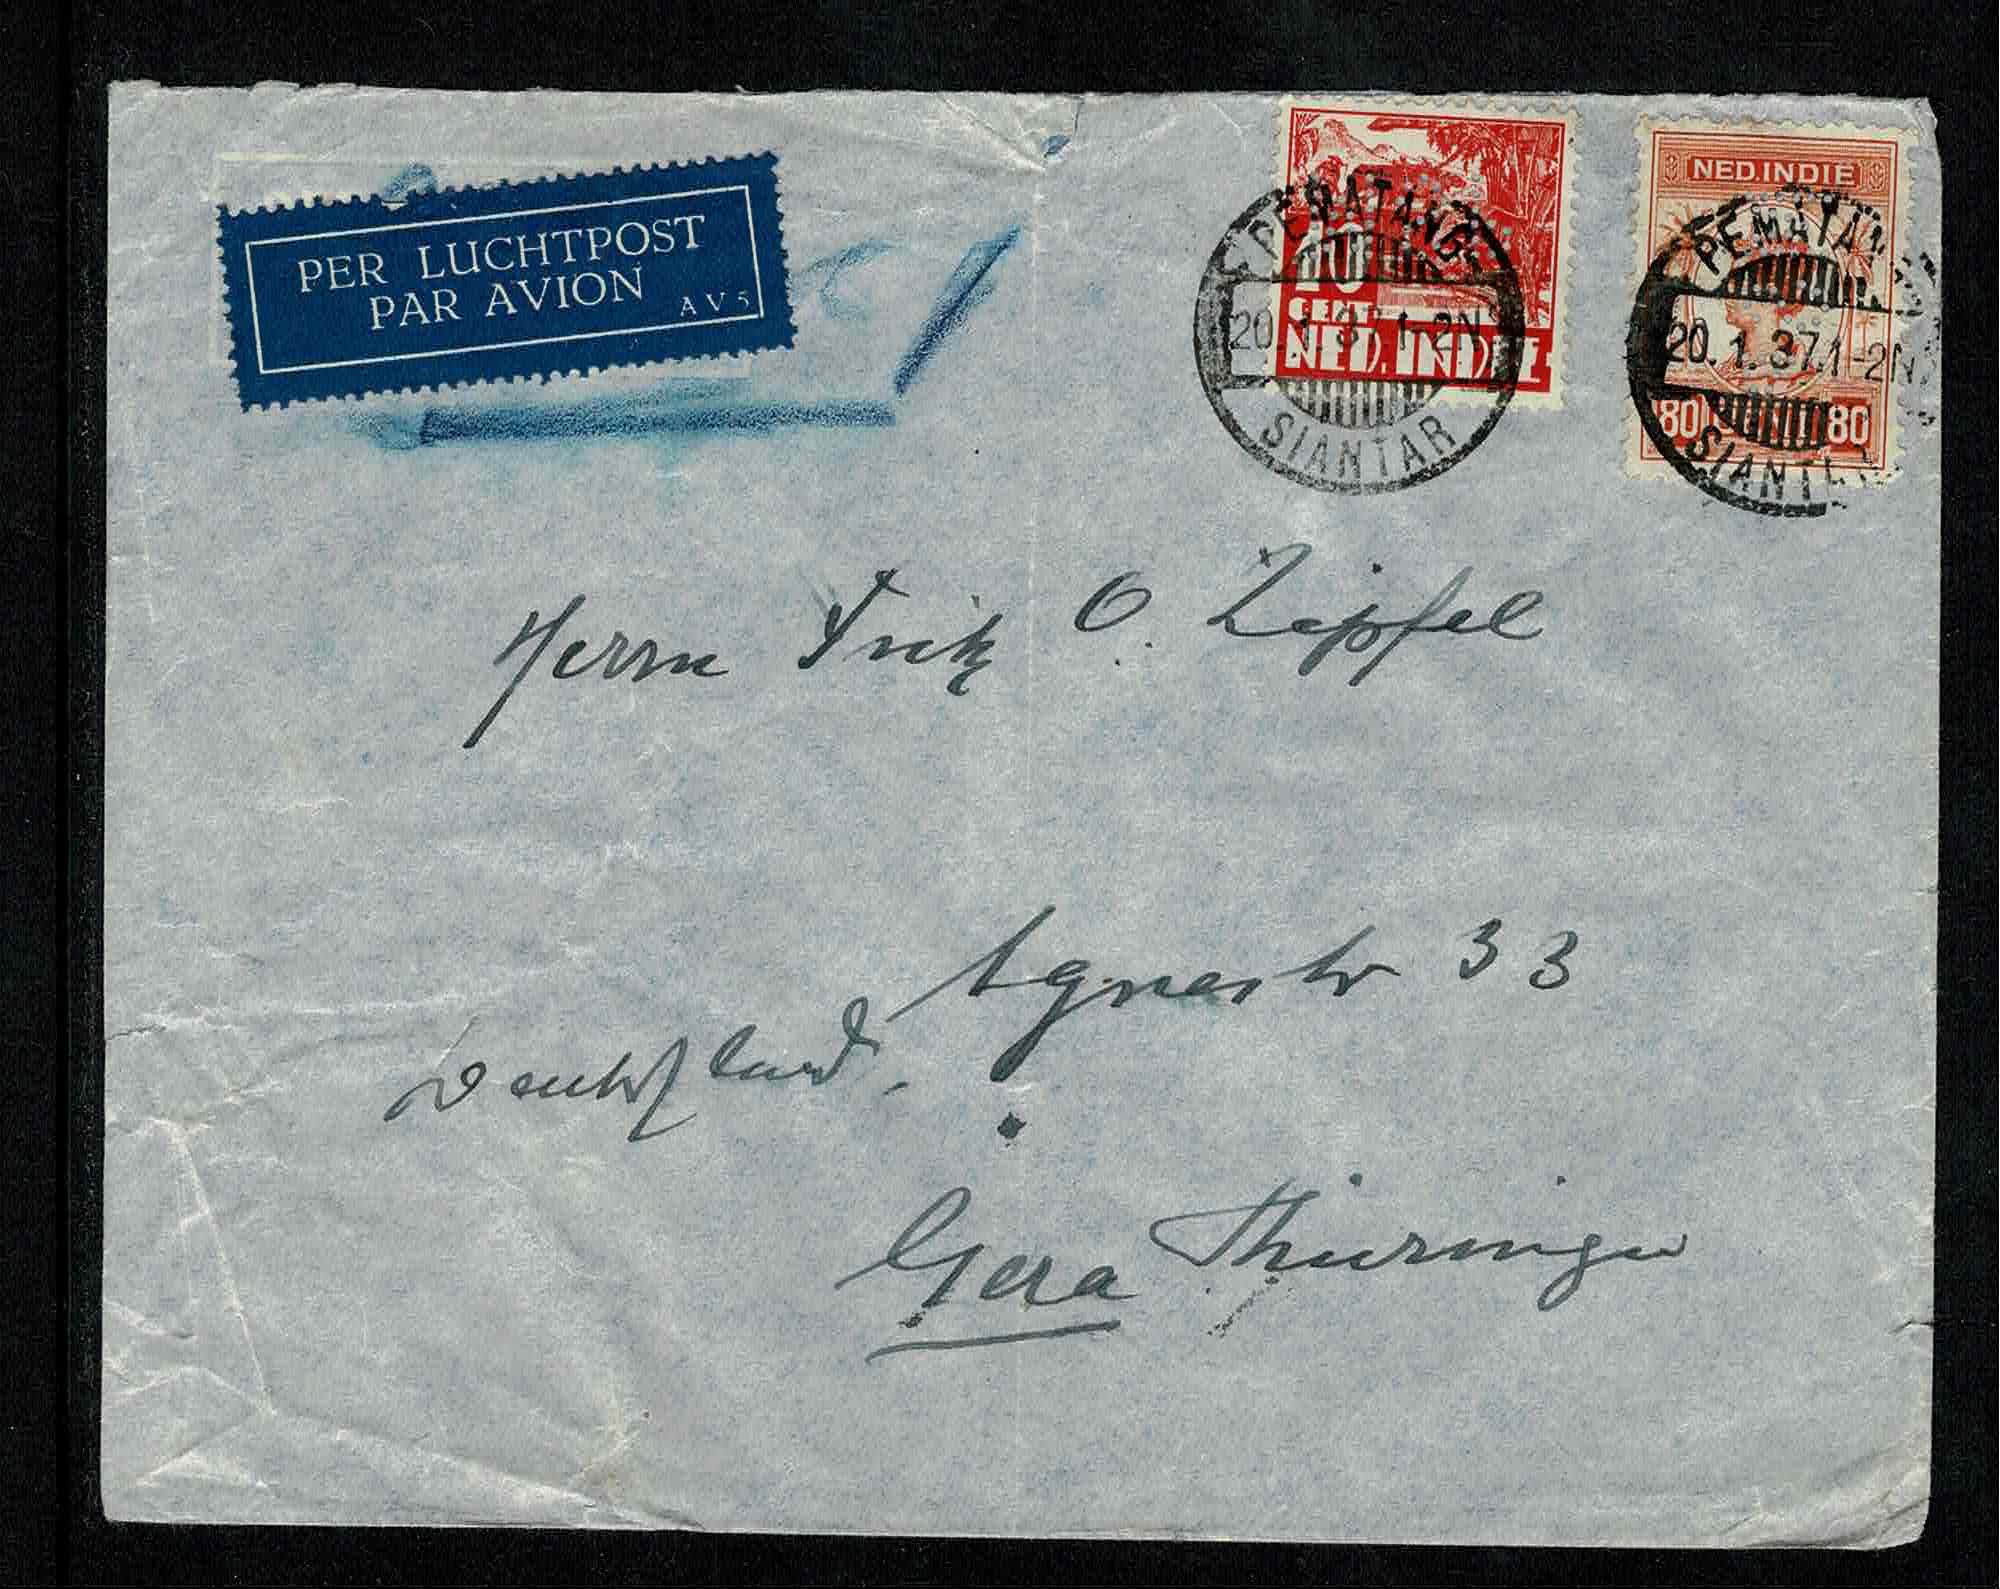 PER LUCHTPOST
PAR AVION
AV5
10
CENT
NED. INDIE
PEMATANG-
20.1.37.1-2N
SIANTAR
NED. INDIE
80 CENT 80
PEMATANG
20.1.37.1-2N
SIANTAR
Herrn Fritz O. Zipfel
Agnesstr 33
Deutschland.
Gera Thüringen